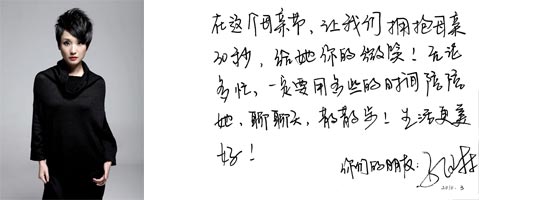 在这个母亲节，让我们拥抱母亲
30秒，给她你的微笑！无论
多忙，一定要用多些的时间陪陪
她，聊聊天，散散步！生活更美
好！
你们的朋友：
2010.3